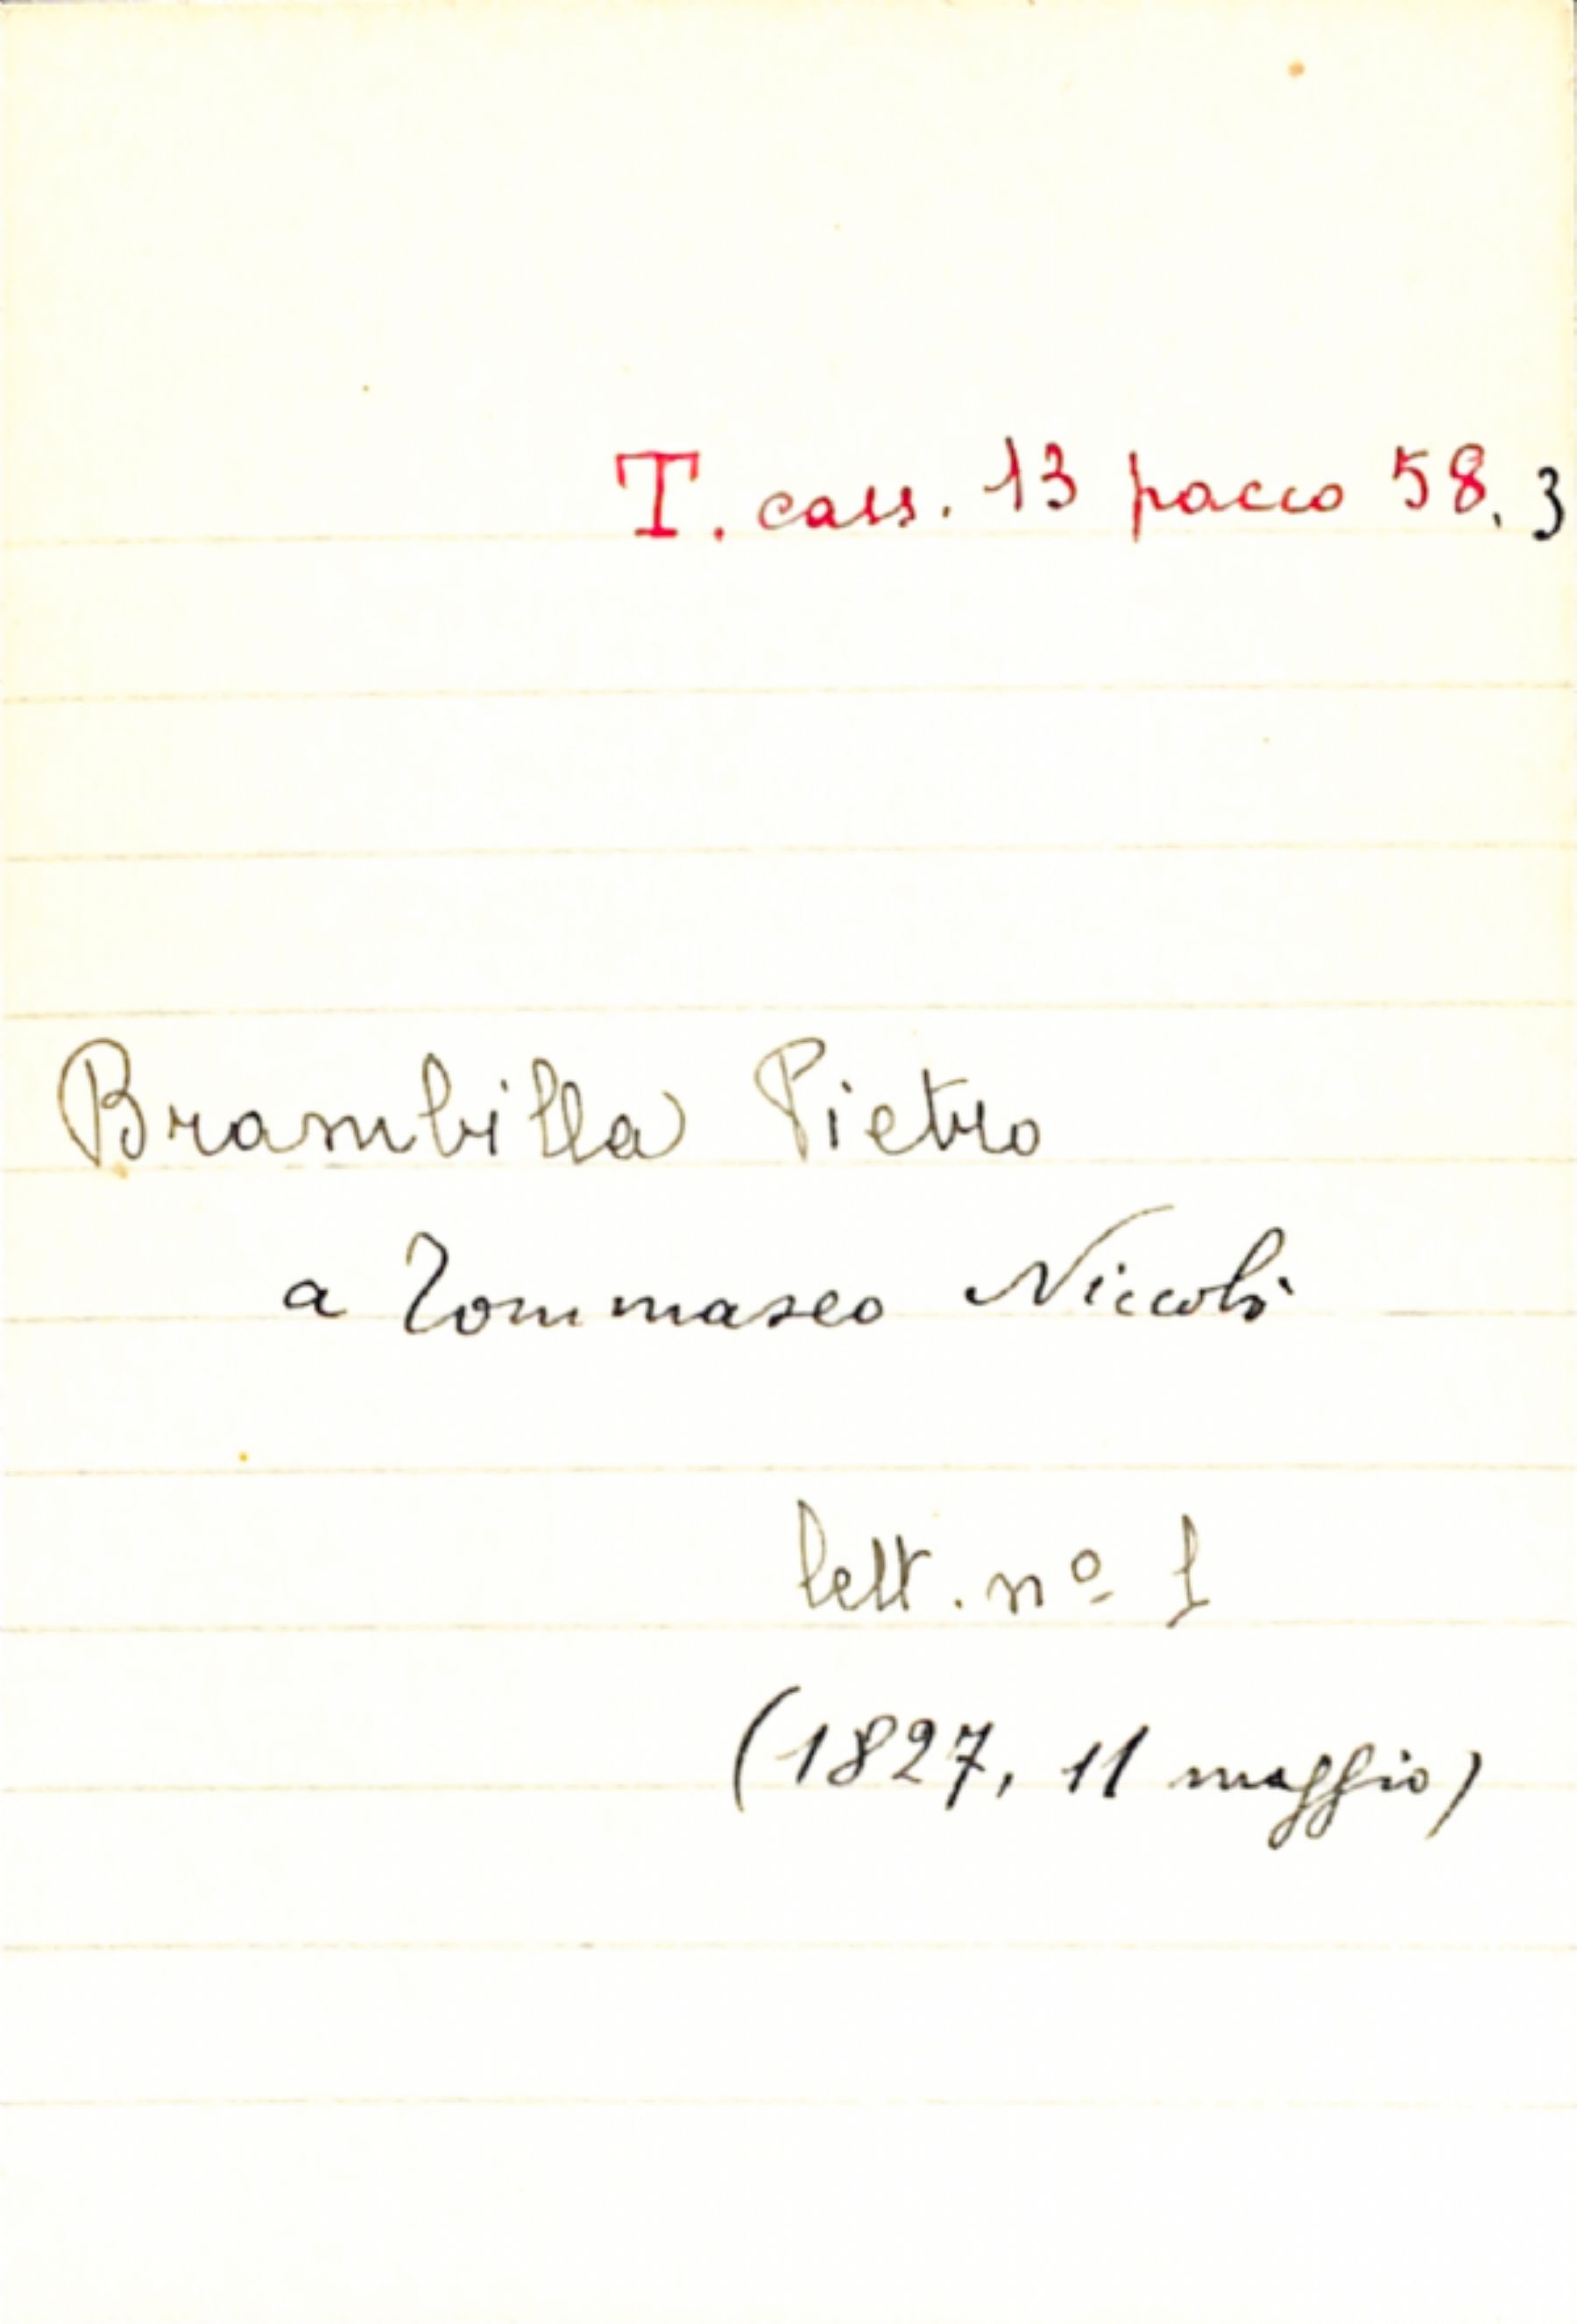 T. cass. 13 pacco 58. 3
Brambilla Pietro
a Tommaseo Niccolò
lett. nº 1
(1827, 11 maggio)